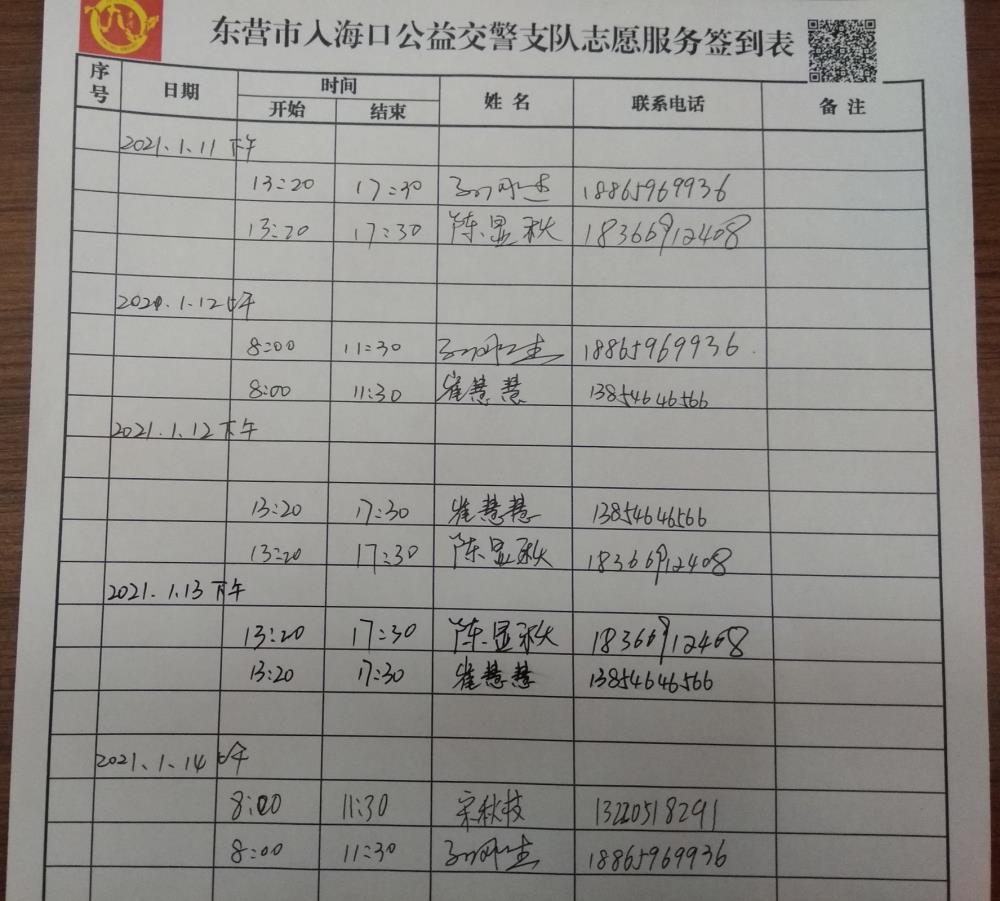 东营市入海口公益交警支队志愿服务签到表
序号 日期 时间 姓名 联系电话 备注
开始 结束
2021.1.11 下午
13:20 17:30 18865969936
13:20 17:30 陈显秋 18366912408
2021.1.12 上午
8:00 11:30 18865969936
8:00 11:30 崔慧慧 13854646566
2021.1.12 下午
13:20 17:30 崔慧慧 13854646566
13:20 17:30 陈显秋 18366912408
2021.1.13 下午
13:20 17:30 陈显秋 18366912408
13:20 17:30 崔慧慧 13854646566
2021.1.14 上午
8:00 11:30 宋秋枝 13220518291
8:00 11:30 18865969936